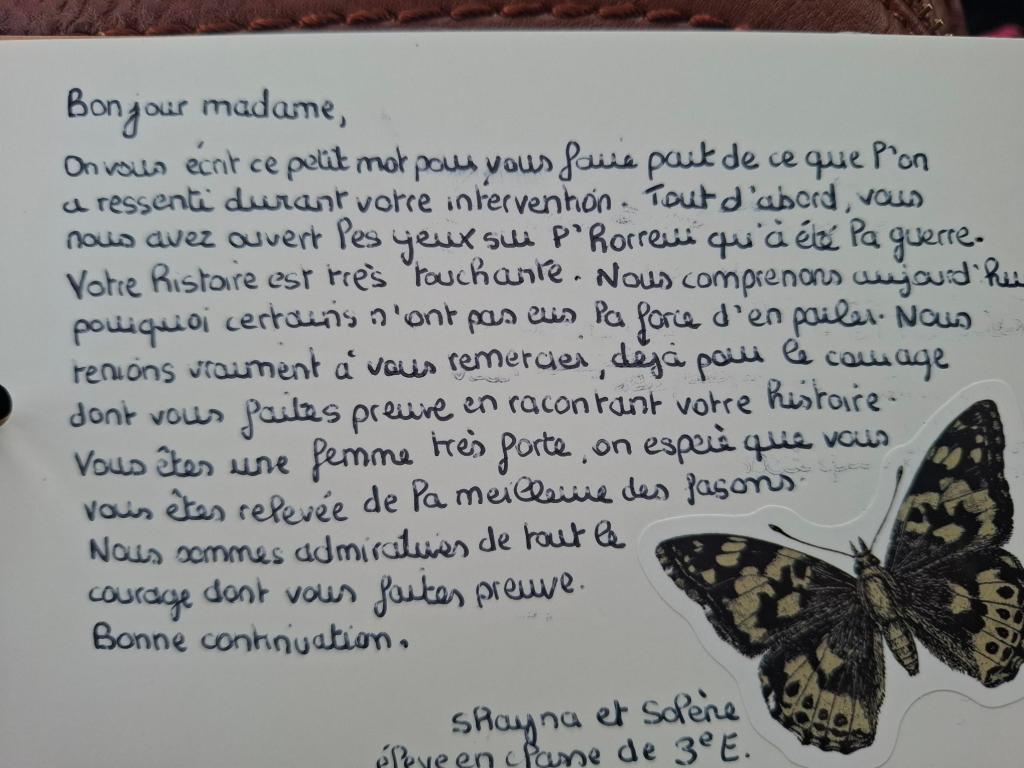 Bonjour madame,
On vous écrit ce petit mot pour vous faire part de ce que l'on
a ressenti durant votre intervention. Tout d'abord, vous
nous avez ouvert les yeux sur l'horreur qu'à été la guerre.
Votre histoire est très touchante. Nous comprenons aujourd'hu
pourquoi certains n'ont pas eus la force d'en parler. Nous
tenions vraiment à vous remercier, déjà pour le courage
dont vous faites preuve en racontant votre histoire.
Vous êtes une femme très forte, on espère que vous
vous êtes relevée de la meilleure des fasons.
Nous sommes admiratives de tout le
courage dont vous faites preuve.
Bonne continuation.
Shayna et Solène
élève en classe de 3e E.